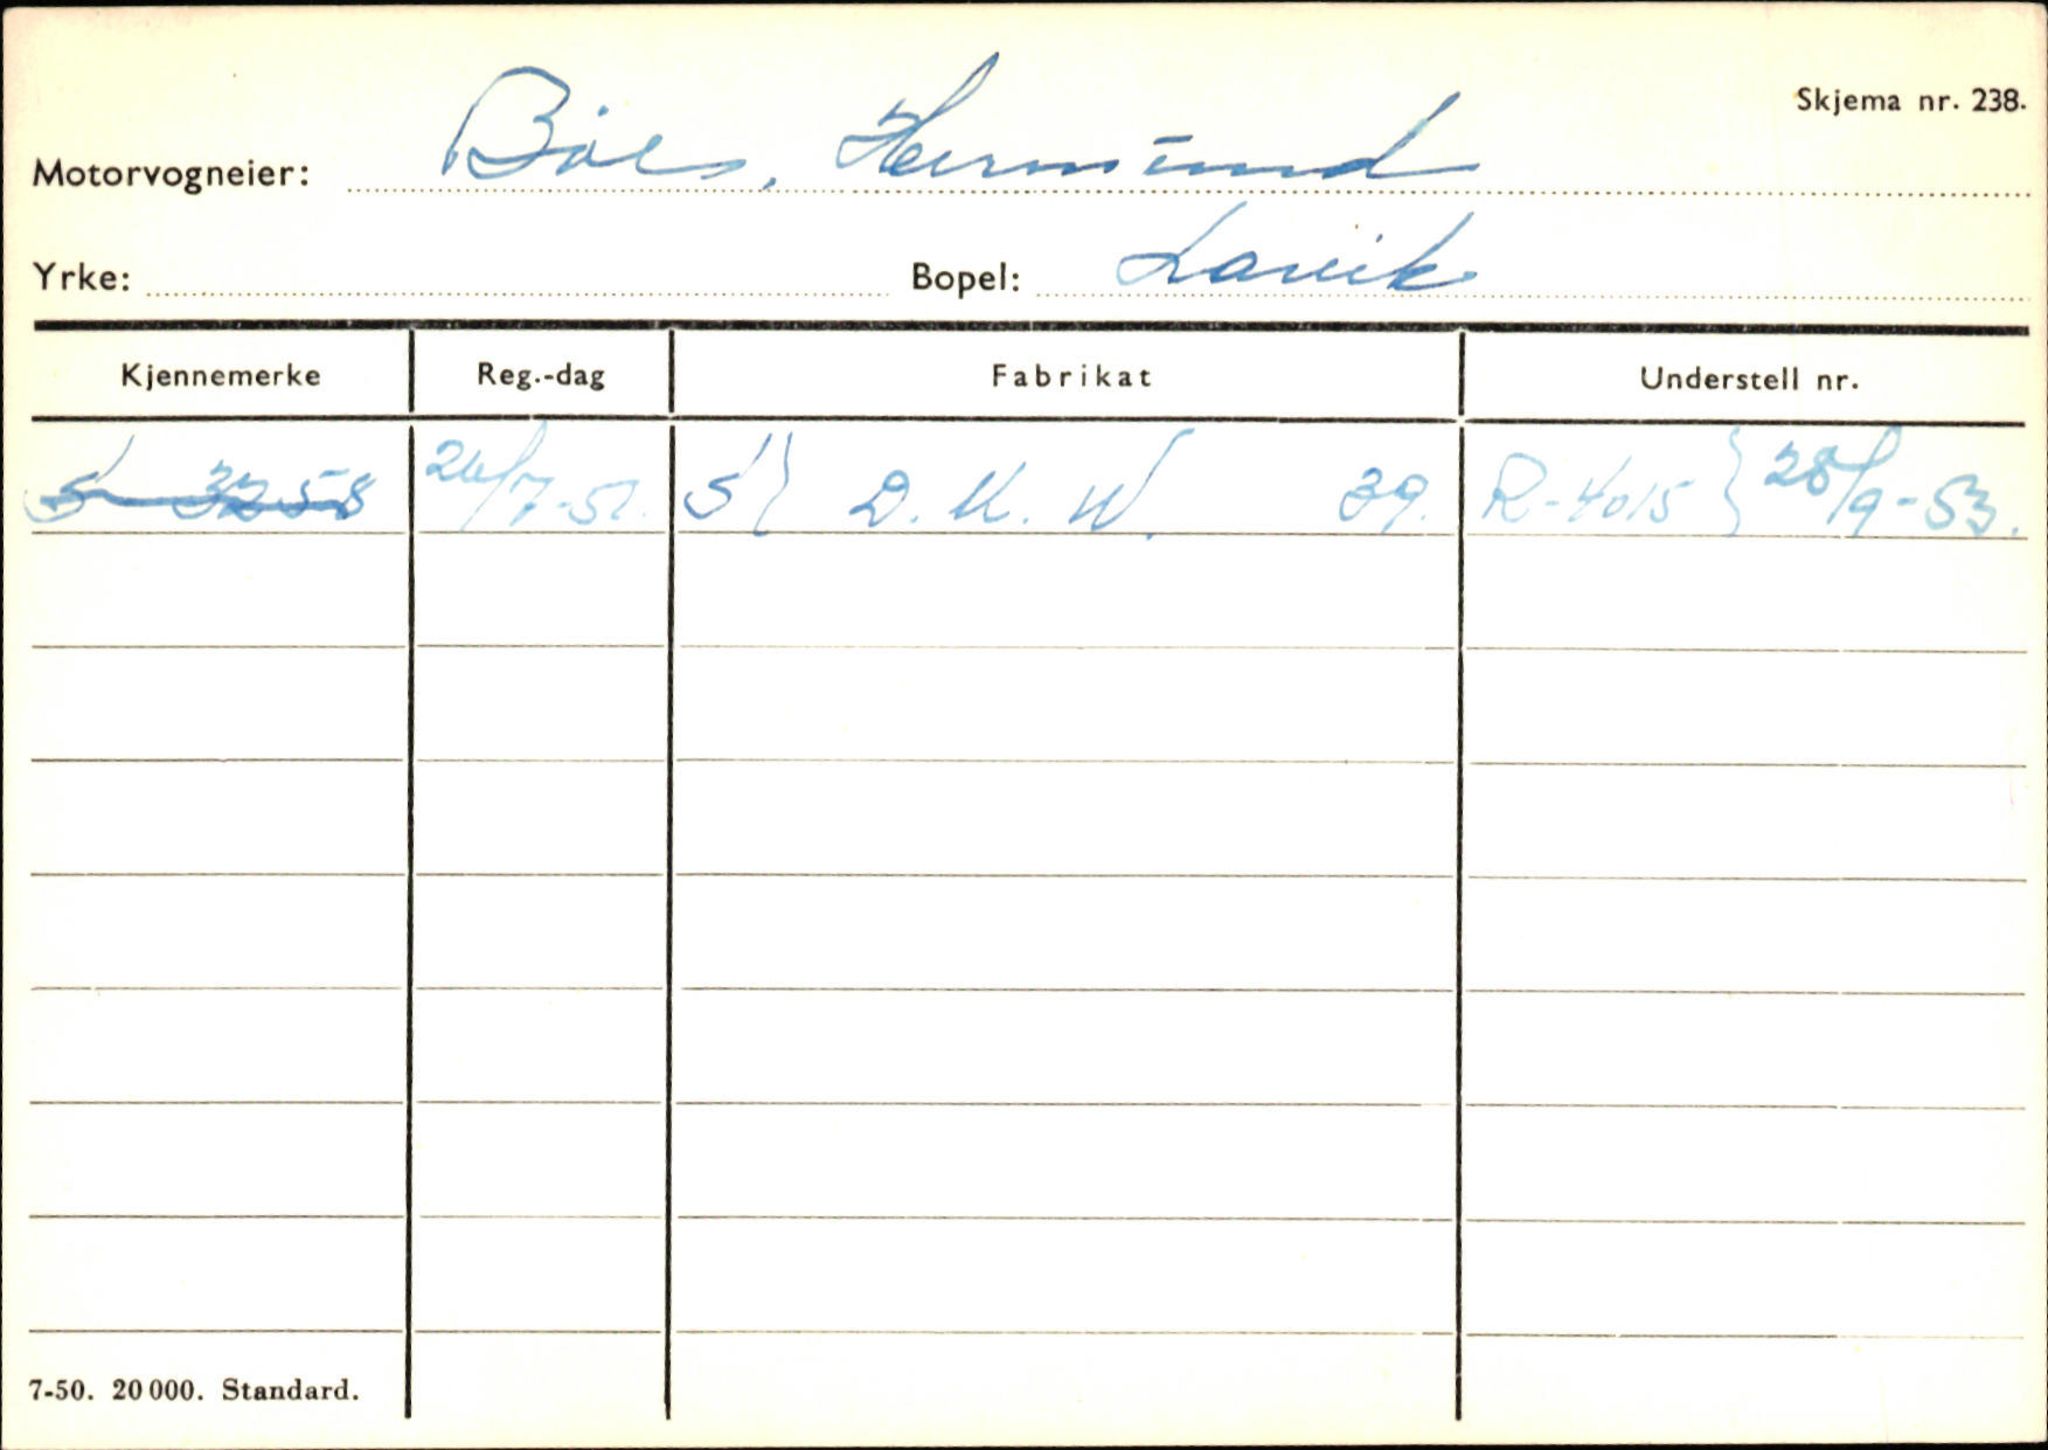 Skjema nr. 238.
Motorvogneier: Böe, Hermund
Yrke: Bopel: Lavik
Kjennemerke Reg.-dag Fabrikat Understell nr.
S 3258 26/7-51. S} D.K.W. 39. R-4015} 28/9-53.
7-50. 20 000. Standard.